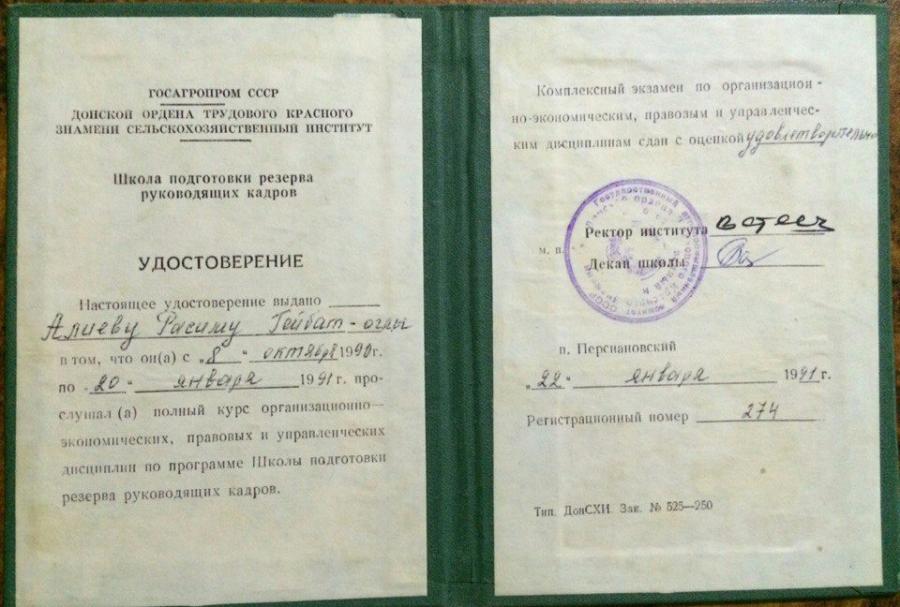 ГОСАГРОПРОМ СССР
ДОНСКОЙ ОРДЕНА ТРУДОВОГО КРАСНОГО
ЗНАМЕНИ СЕЛЬСКОХОЗЯЙСТВЕННЫЙ ИНСТИТУТ
Школа подготовки резерва
руководящих кадров
УДОСТОВЕРЕНИЕ
Настоящее удостоверение выдано
Алиеву Расиму Гейбат-оглы
в том, что он(а) с „8" октября 1990г.
по „20" января 1991 г. про-
слушал (а) полный курс организационно—
экономических, правовых и управленческих
дисциплин по программе Школы подготовки
резерва руководящих кадров.
Комплексный экзамен по организацион-
но-экономическим, правовым и управленчес-
ким дисциплинам сдан с оценкой удовлетворительно
Ректор института
м. п.
Декан школы
п. Персиановский
„22" января 1991г.
Регистрационный номер 274
Тип. ДонСХИ. Зак. № 525—250